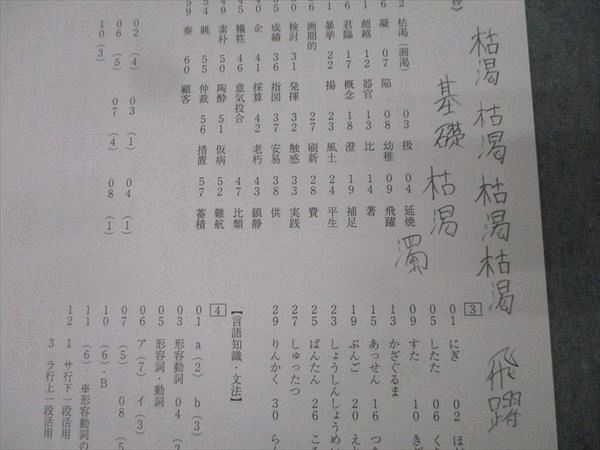 枯渇 枯渇 枯渇 枯渇 飛躍
基礎 枯渇
濁
2 枯渇(涸渇) 03 扱 04 延焼
6 凝 07 陥 08 幼稚 09 飛躍
1 超越 12 器官 13 比 14 著
6 君臨 17 概念 18 澄 19 補足
1 暴挙 22 揚 23 風土 24 平生
6 画期的 27 刷新 28 費
0 検討 31 発揮 32 触感 33 実践
5 成績 36 指図 37 安易 38 供
40 企 41 採算 42 老朽 43 鎮静
45 犠牲 46 意気投合 47 比類
49 素朴 50 陶酔 51 仮病 52 難航
54 眺 55 仲裁 56 措置 57 蓄積
59 奏 60 顧客
02 (4) 03 (1) 04 (1)
06 (5) 07 (4) 08 (1)
10 (3)
3
01 にぎ 02 ほ
05 したた 06 く
09 すた 10 き
13 かざぐるま
15 あっせん 16 つ
19 ぶんご 20 え
23 しょうしんしょうめい
25 ばんたん 26 こ
27 しゅったつ
29 りんかく 30 ら
【言語知識・文法】
4
01 a(2) b(3)
03 形容動詞 04 (2
05 形容詞・動詞
06 ア(7) イ(3)
07 (5) 08 (5
10 (6)・B
11 (6) ※形容動詞の
12 1 サ行下一段活用
3 ラ行上一段活用